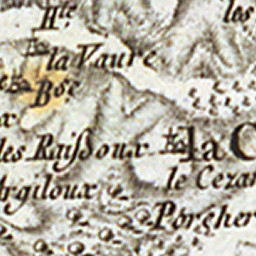 H.te
les
la Vaure
B.se
x
les Raissoux
la C
Argiloux
le Cezar
Porgher